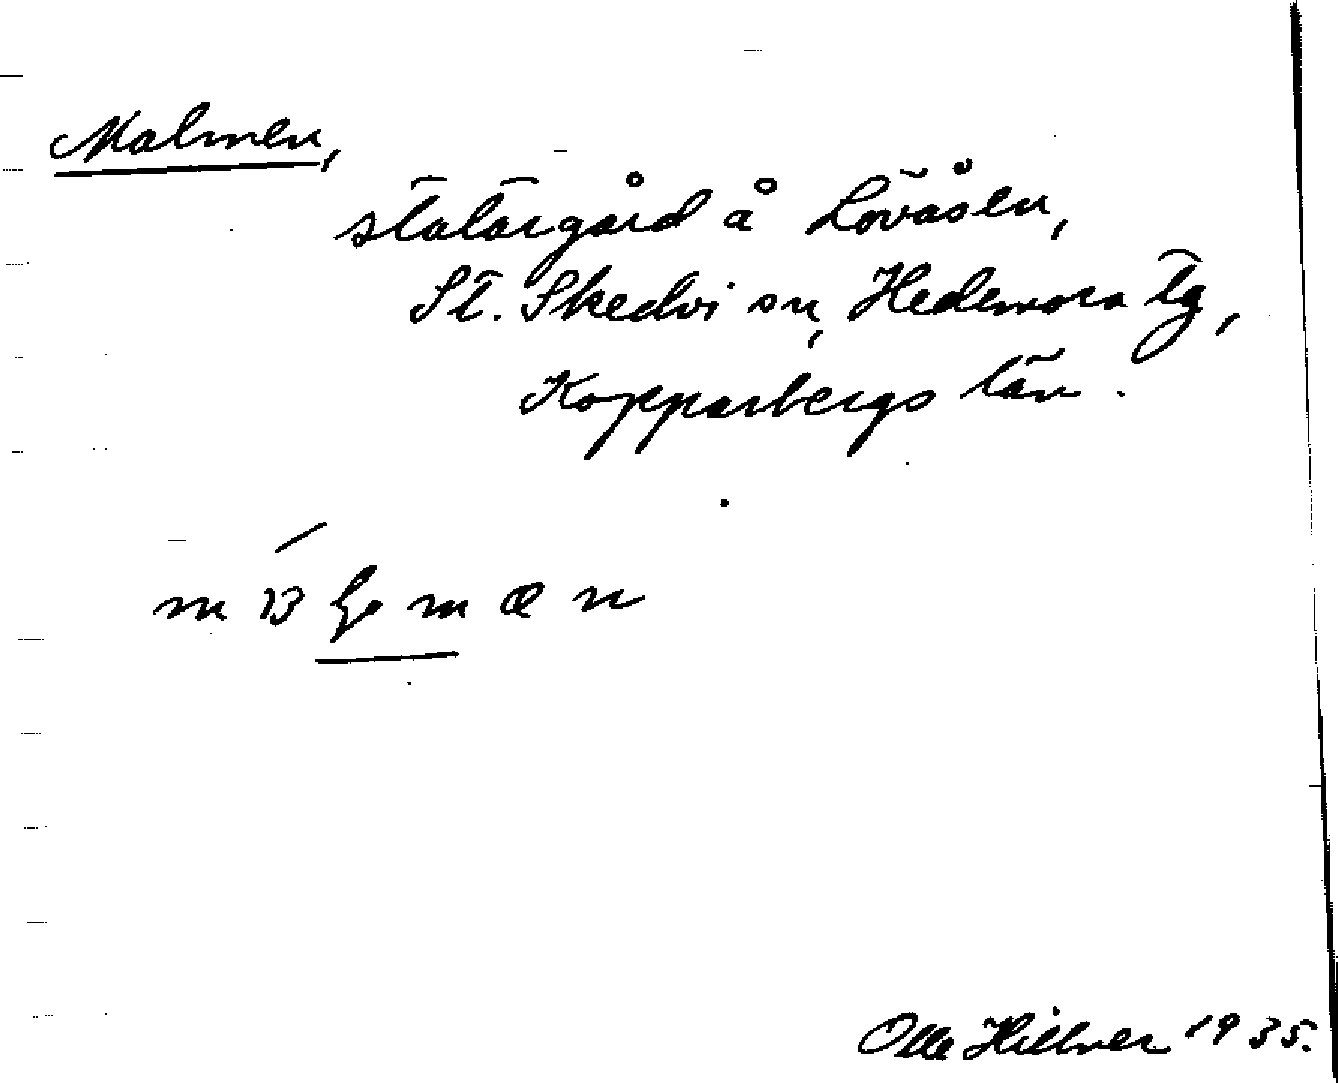 Malmen,
statargård å Lövåsen,
St. Skedvi sn, Hedemora tg,
Kopparbergs län.
Olle Hillver 1935.